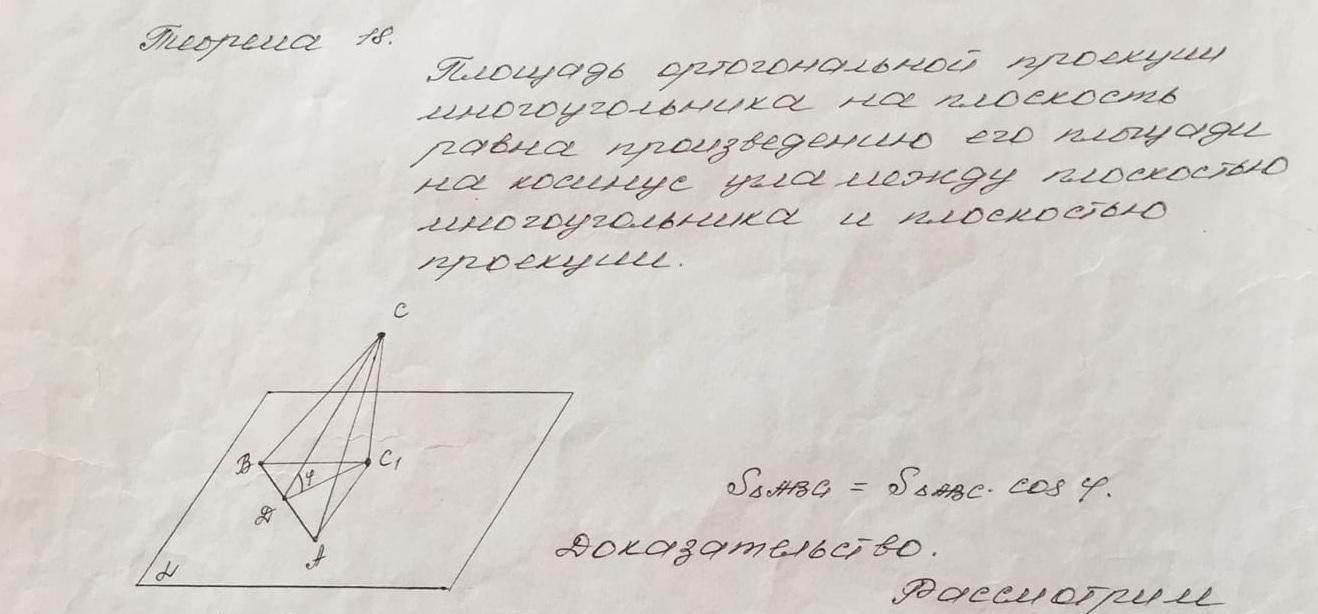 Теорема 18.
Площадь ортогональной проекции
многоугольника на плоскость
равна произведению его площади
на косинус угла между плоскостью
многоугольника и плоскостью
проекции.
C
B
C₁
φ
D
A
α
S△ABC₁ = S△ABC · cos φ.
Доказательство.
Рассмотрим